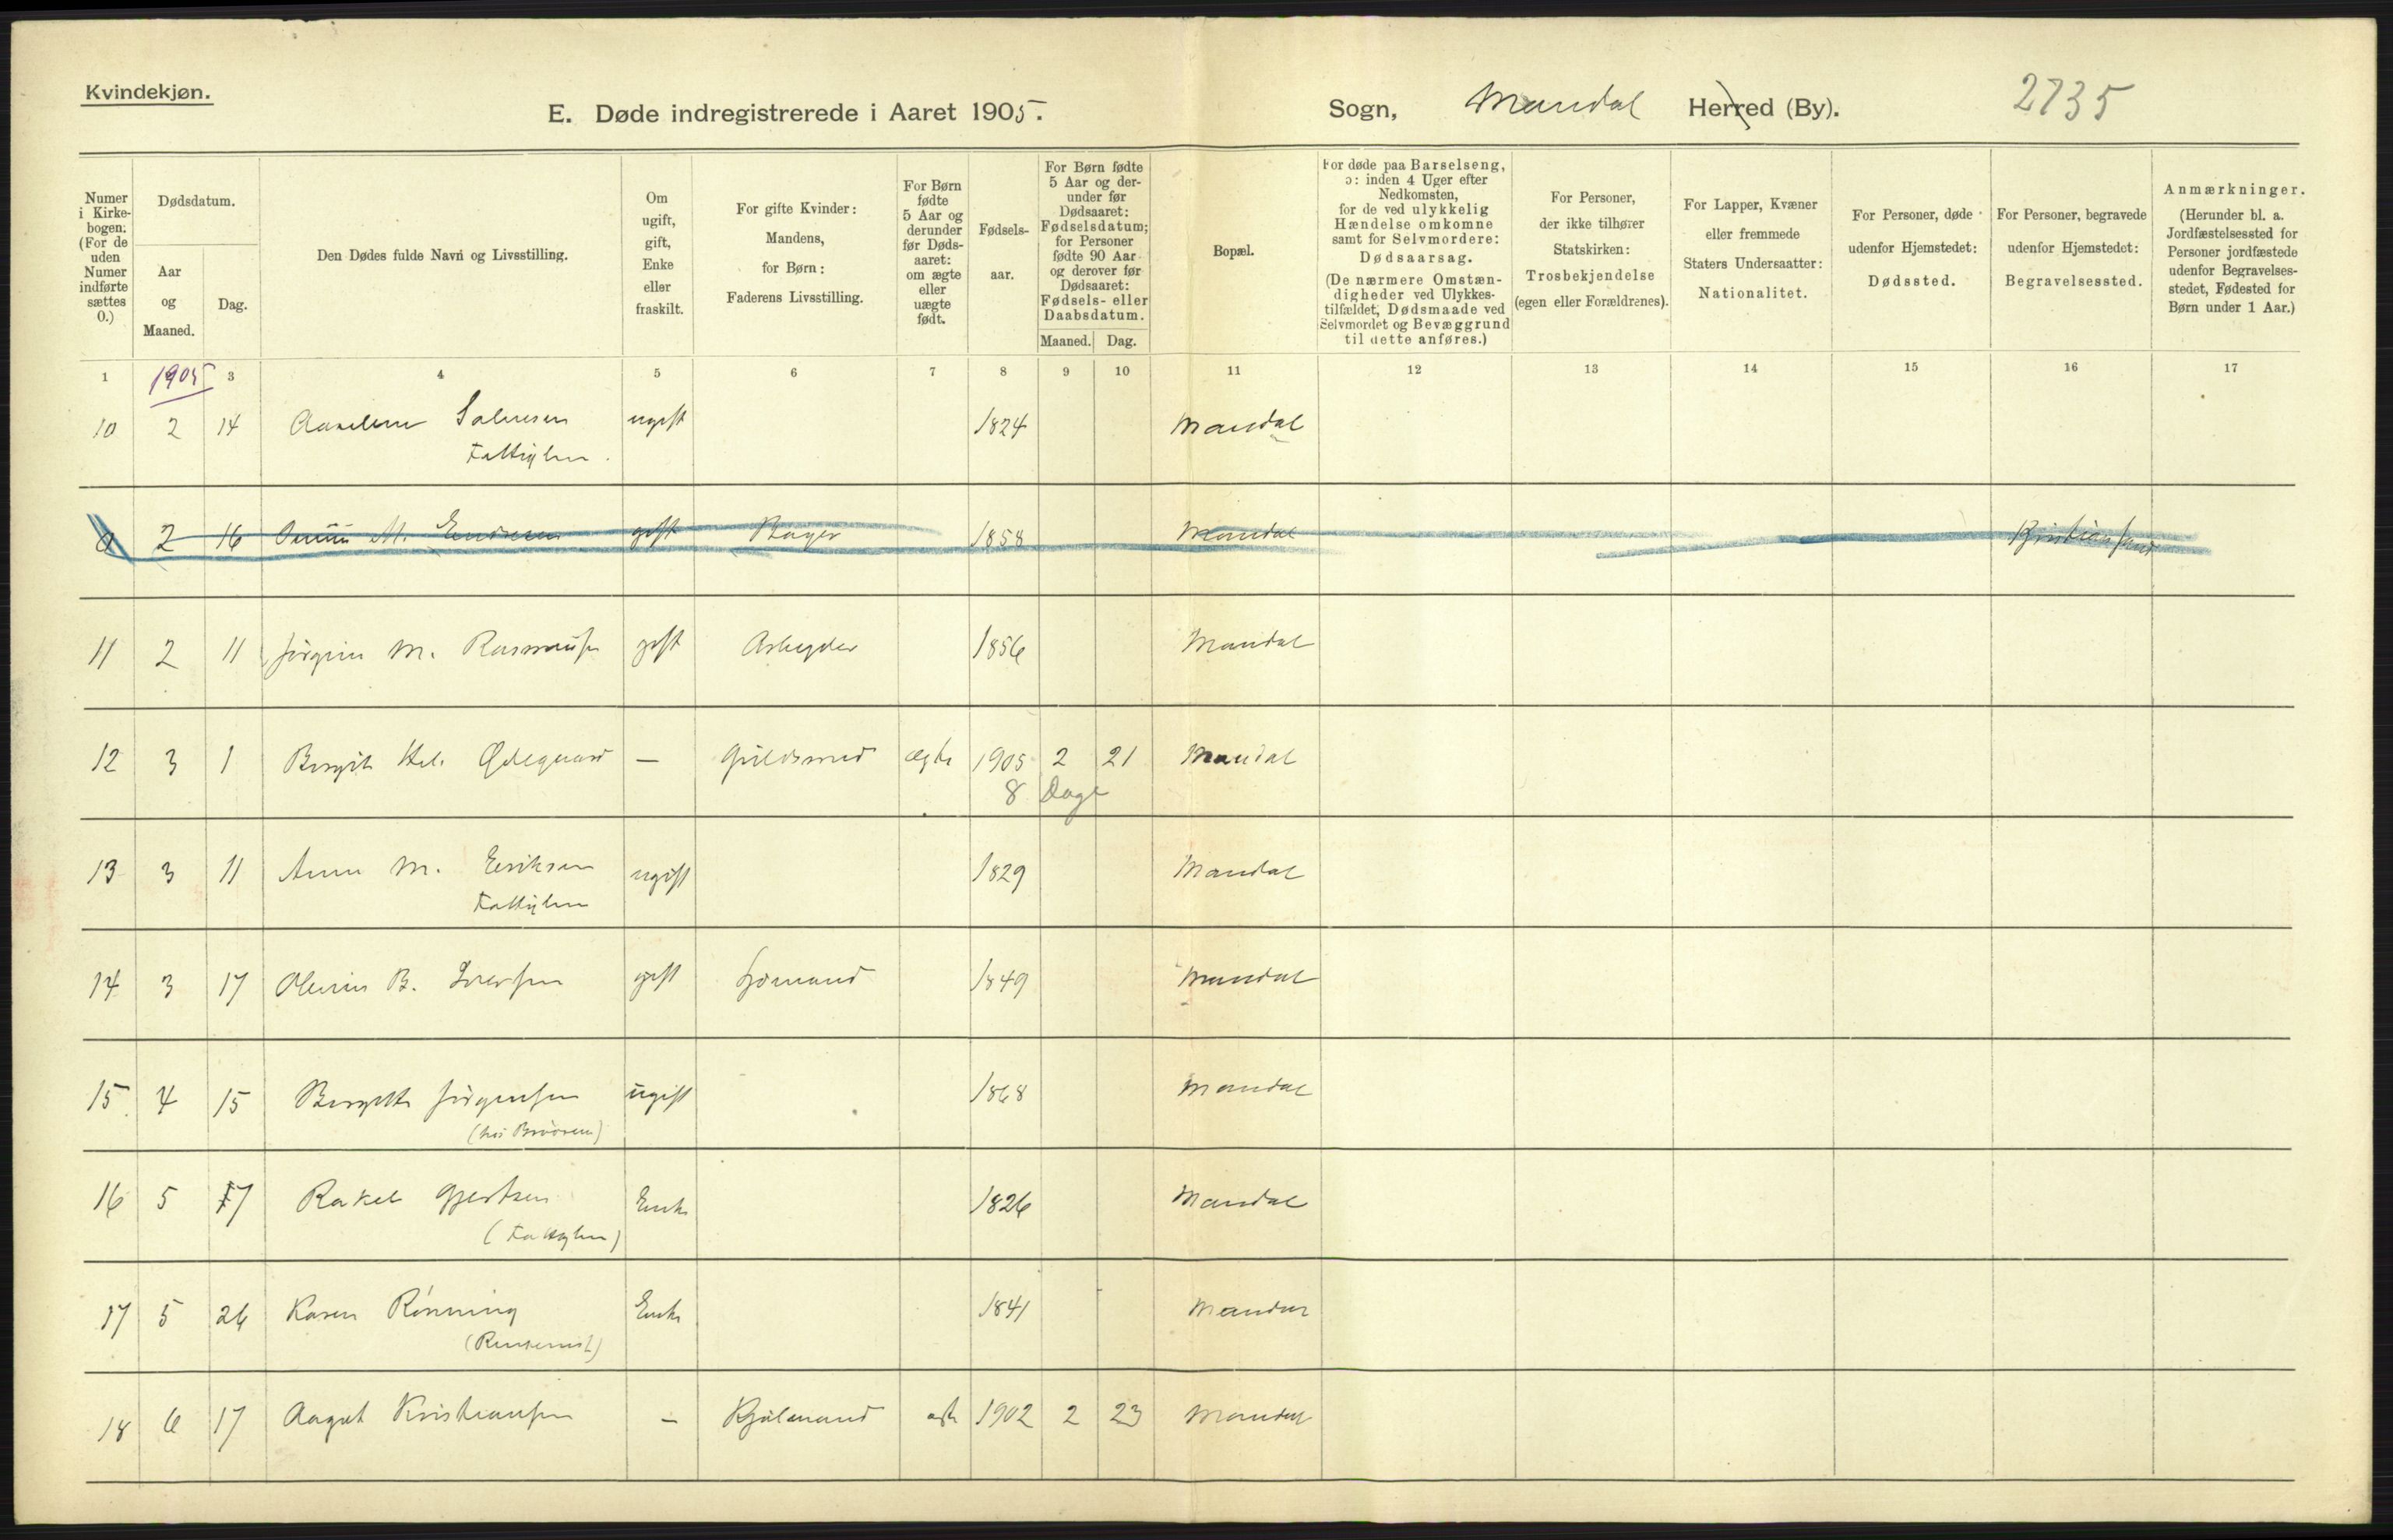 Kvindekjøn.
E. Døde indregistrerede i Aaret 1905.
Sogn, Mandal Herred (By).
2735
Numer i Kirkebogen: (For de uden Numer indførte sættes 0.)
Dødsdatum.
Aar og Maaned.
Dag.
Den Dødes fulde Navn og Livsstilling.
Om ugift, gift, Enke eller fraskilt.
For gifte Kvinder: Mandens, for Børn: Faderens Livsstilling.
For Børn fødte 5 Aar og derunder før Dødsaaret: om ægte eller uægte født.
Fødselsaar.
For Børn fødte 5 Aar og derunder før Dødsaaret: Fødselsdatum; for Personer fødte 90 Aar og derover før Dødsaaret: Fødsels- eller Daabsdatum.
Maaned. Dag.
Bopæl.
For døde paa Barselseng, ɔ: inden 4 Uger efter Nedkomsten, for de ved ulykkelig Hændelse omkomne samt for Selvmordere: Dødsaarsag. (De nærmere Omstændigheder ved Ulykkestilfældet, Dødsmaade ved Selvmordet og Bevæggrund til dette anføres.)
For Personer, der ikke tilhører Statskirken: Trosbekjendelse (egen eller Forældrenes).
For Lapper, Kvæner eller fremmede Staters Undersaatter: Nationalitet.
For Personer, døde udenfor Hjemstedet: Dødssted.
For Personer, begravede udenfor Hjemstedet: Begravelsessted.
Anmærkninger. (Herunder bl. a. Jordfæstelsessted for Personer jordfæstede udenfor Begravelsesstedet, Fødested for Børn under 1 Aar.)
1 1905 3 4 5 6 7 8 9 10 11 12 13 14 15 16 17
10 2 14 Salvesen ugift 1824 Mandal
Fattiglem.
0 2 16 M. gift Bager 1858 Mandal Kristiansand
11 2 11 Jørgine M. Rasmusen gift Arbeyder 1856 Mandal
12 3 1 Bergit Hel. Ødegaard — Guldsmed ægte 1905 2 21 Mandal
8 Dage
13 3 11 Anna M. Eriksen ugift 1829 Mandal
Fattiglem
14 3 17 B. gift Sjømand 1849 Mandal
15 4 15 Bergitte Jørgensen ugift 1868 Mandal
(hos Broderen)
16 5 17 Rakel Gjertsen Enke 1826 Mandal
(Fattiglem)
17 5 26 Karen Rønning Enke 1841 Mandal
18 6 17 Aagot Kristiansen — 1902 2 23 Mandal